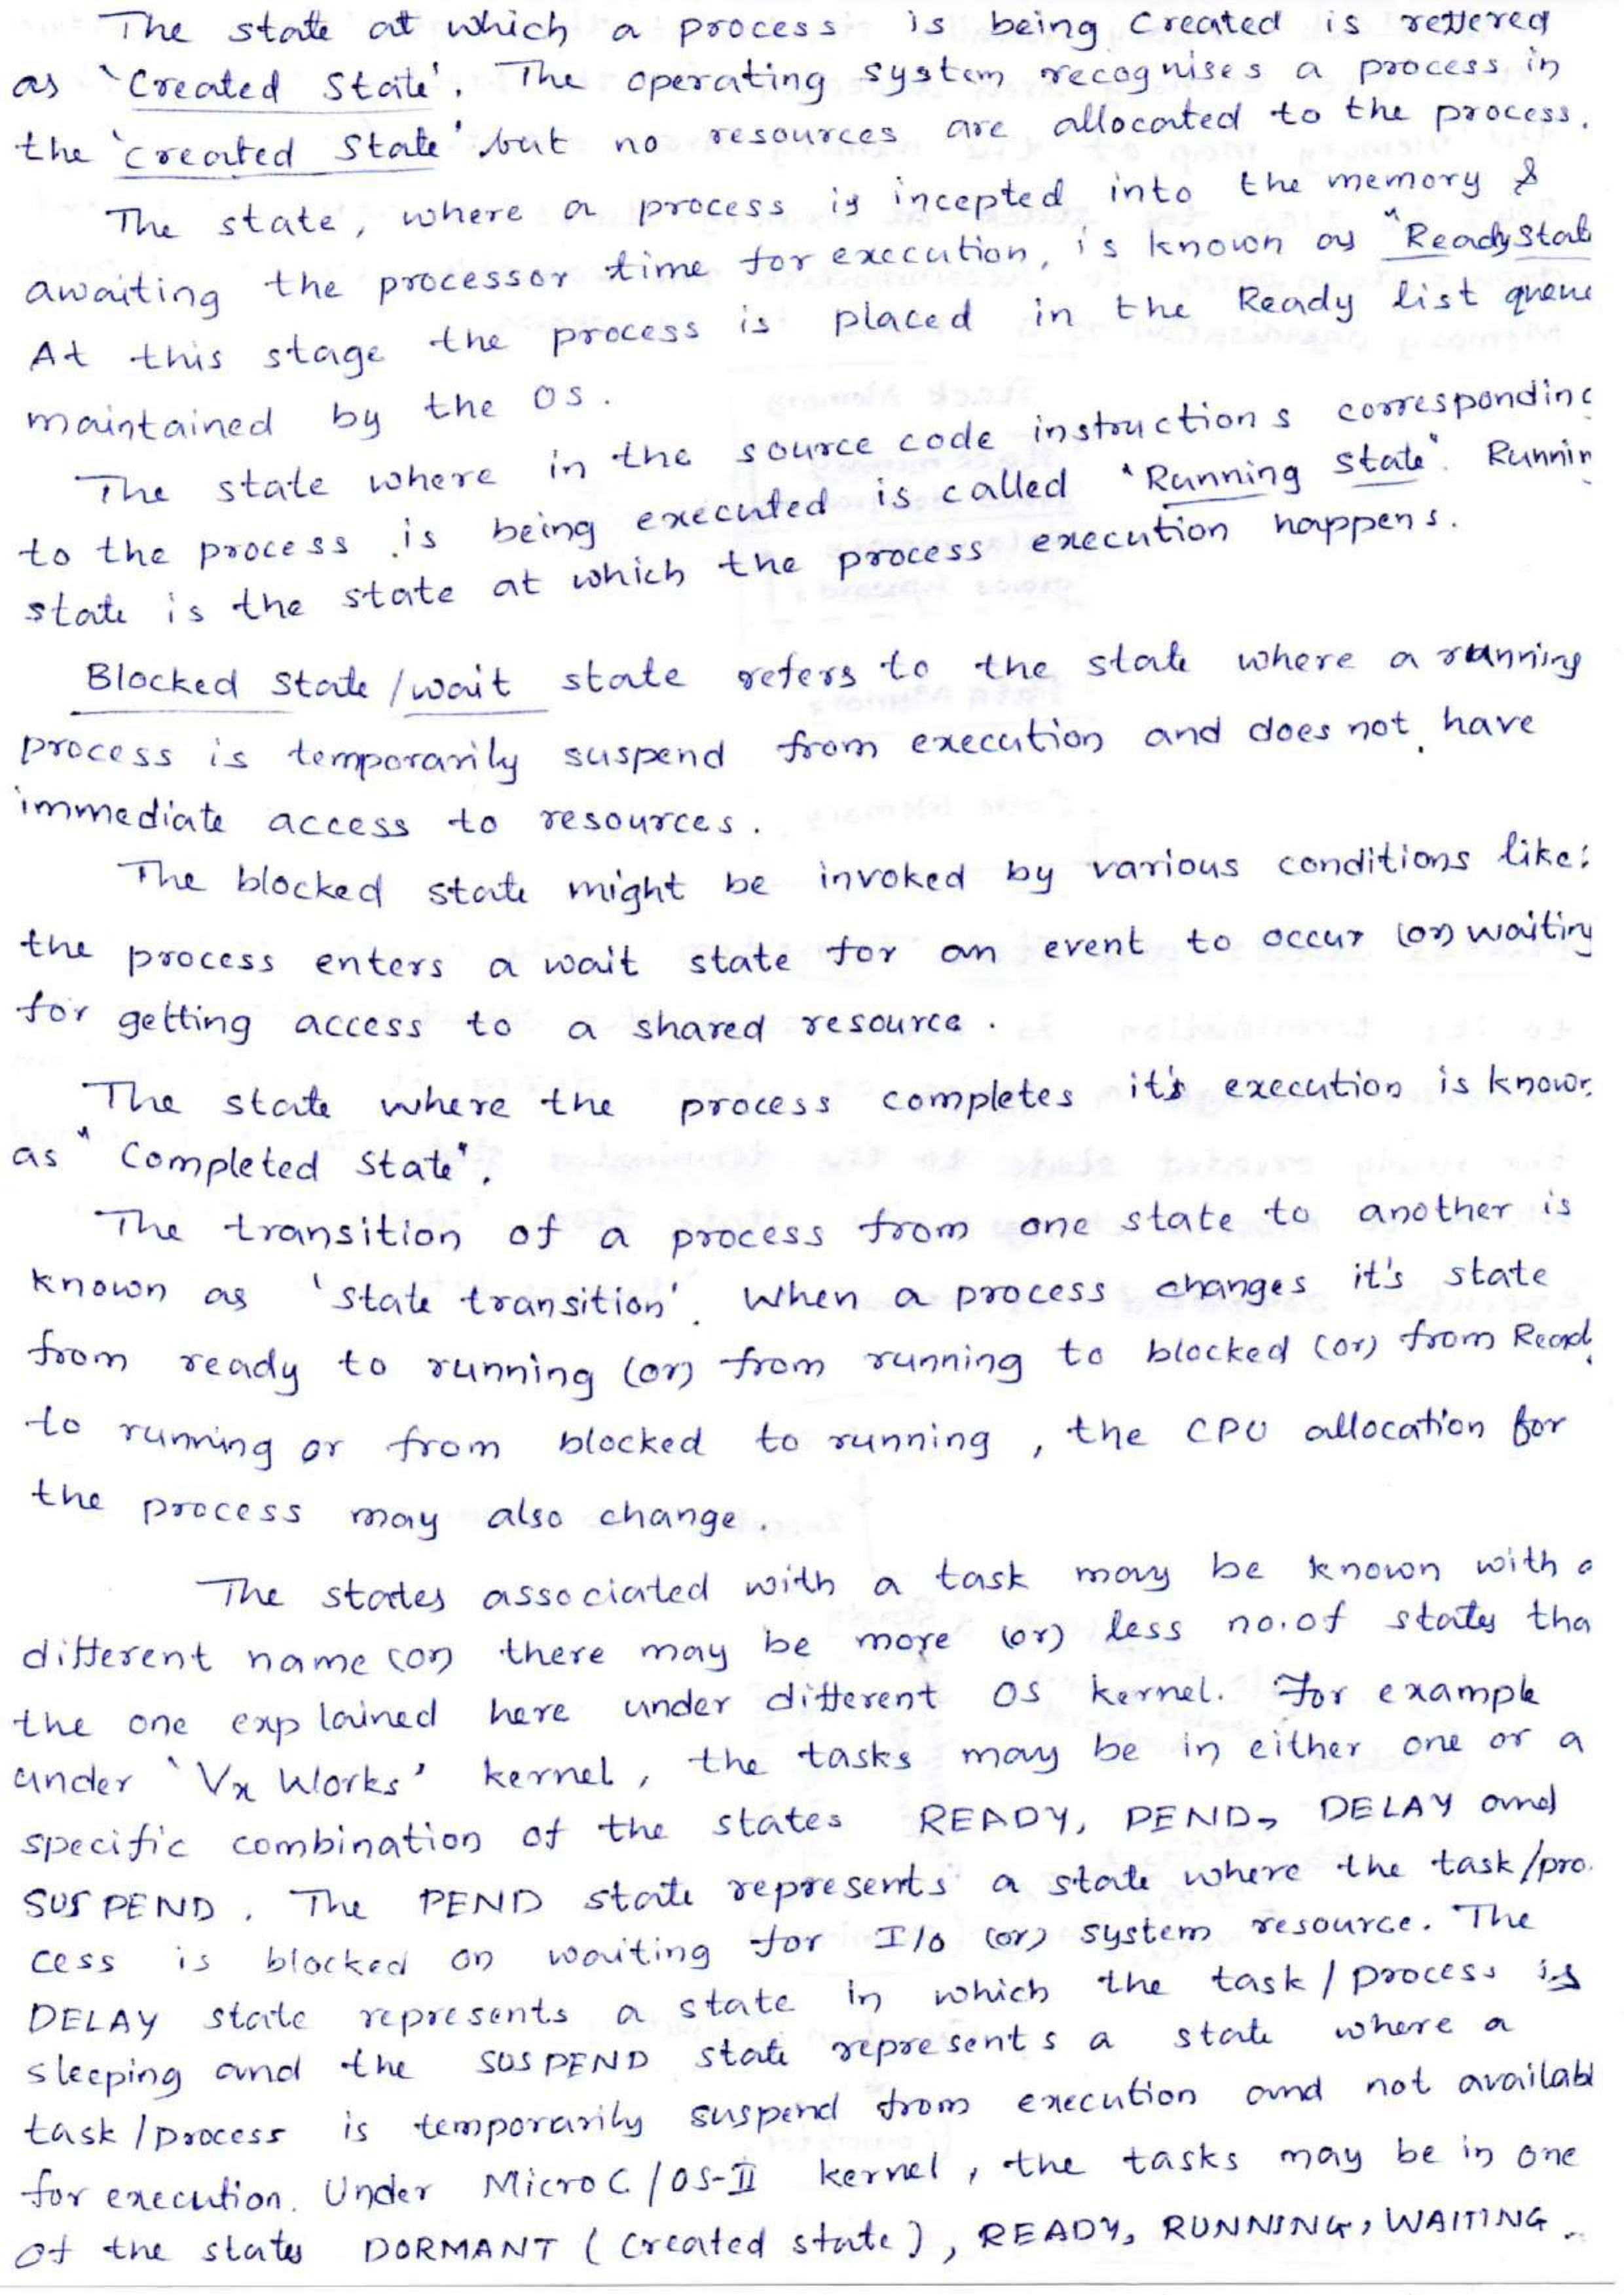 The state at which a process is being created is reffered
as 'Created State'. The operating system recognises a process in
the 'created State' but no resources are allocated to the process.
The state, where a process is incepted into the memory &
awaiting the processor time for execution, is known as "Ready Stat
At this stage the process is placed in the Ready list queue
maintained by the OS.
The state where in the source code instructions corresponding
to the process is being executed is called "Running state". Runnin
state is the state at which the process execution happens.
Blocked State / wait state refers to the state where a running
process is temporarily suspend from execution and does not have
immediate access to resources.
The blocked state might be invoked by various conditions like:
the process enters a wait state for an event to occur (or) waiting
for getting access to a shared resource.
The state where the process completes it's execution is known
as "Completed State".
The transition of a process from one state to another is
known as 'State transition'. When a process changes it's state
from ready to running (or) from running to blocked (or) from Read
to running or from blocked to running, the CPU allocation for
the process may also change.
The states associated with a task may be known with a
different name (or) there may be more (or) less no. of states tha
the one explained here under different OS kernel. For example
under 'Vx Works' kernel, the tasks may be in either one or a
specific combination of the states READY, PEND, DELAY and
SUSPEND. The PEND state represents a state where the task/pro.
cess is blocked on waiting for I/O (or) system resource. The
DELAY state represents a state in which the task / process is
sleeping and the SUSPEND state represents a state where a
task / process is temporarily suspend from execution and not availabl
for execution. Under MicroC / OS-II kernel, the tasks may be in one
of the states DORMANT (Created state), READY, RUNNING, WAITING